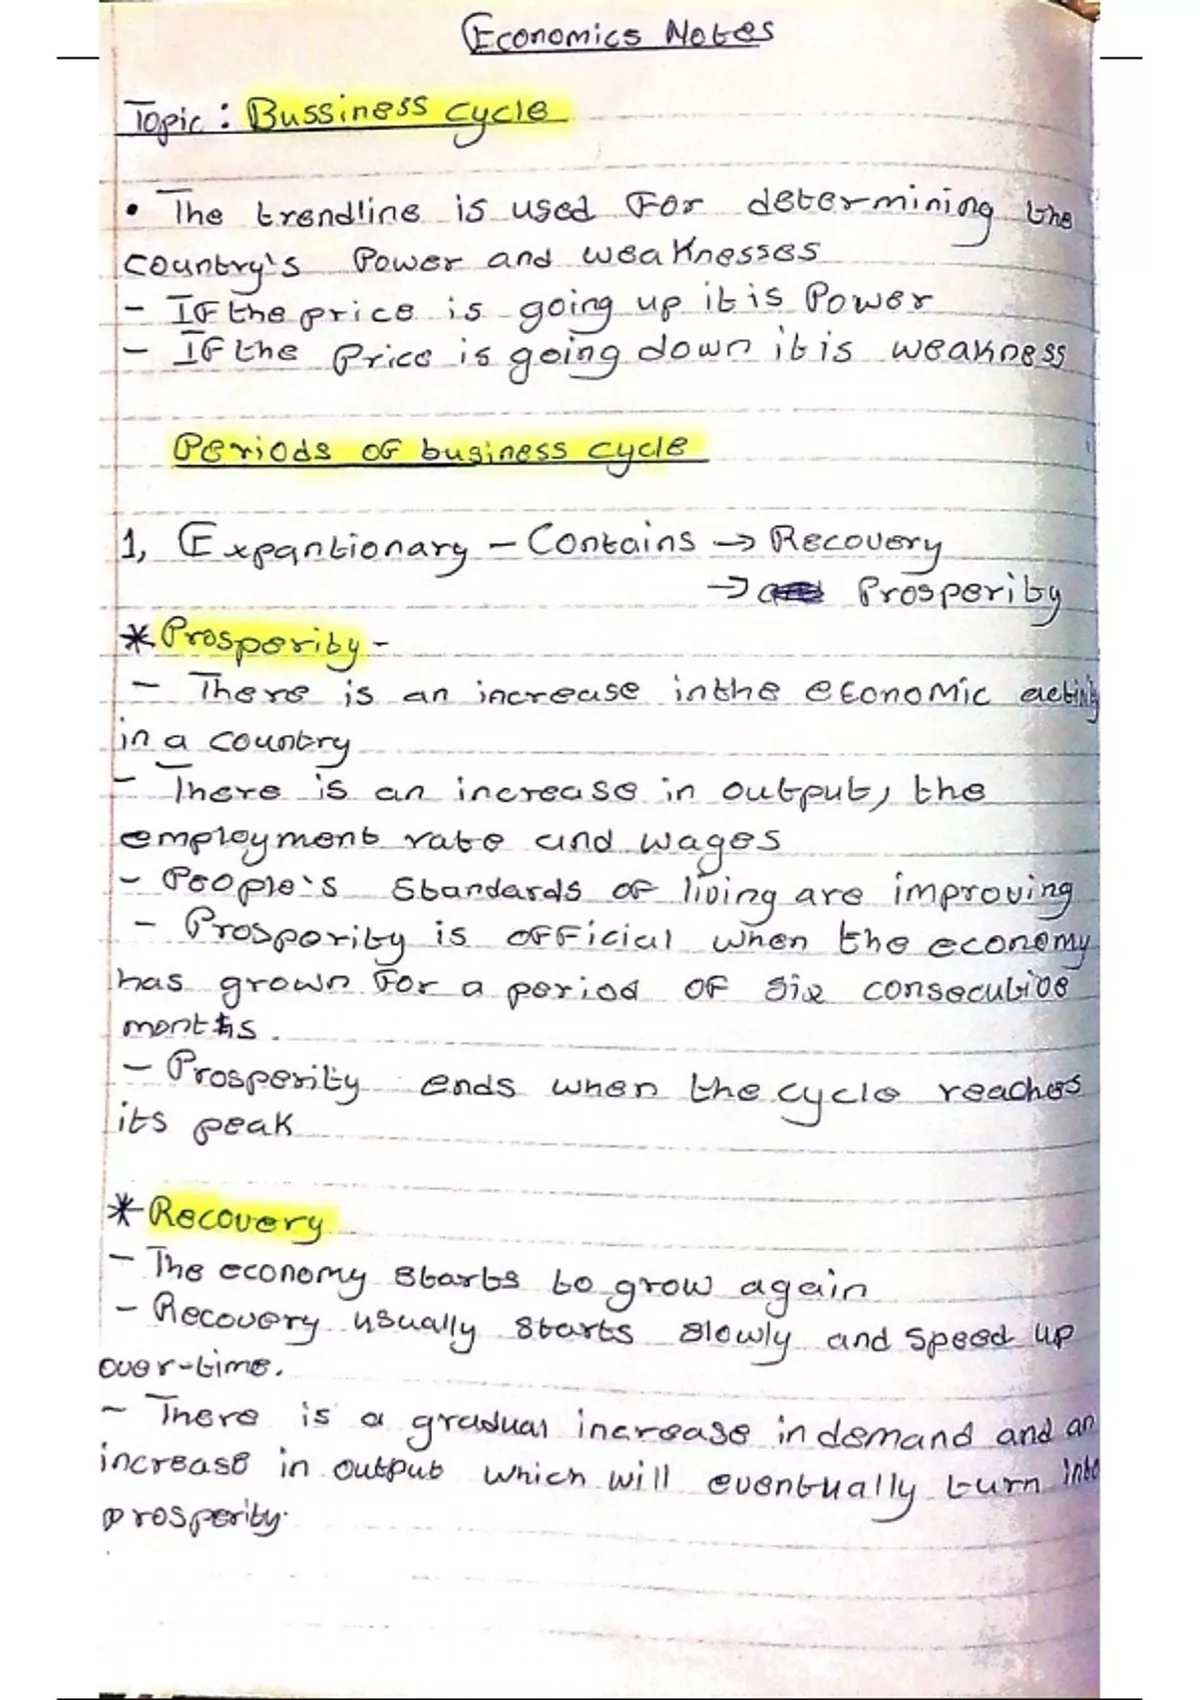 Economics Notes
Topic : Bussiness cycle
• The trendline is used for determining the
country's Power and weaknesses
- If the price is going up it is Power
- If the price is going down it is weakness
Periods of business cycle
1, Expantionary - Contains → Recovery
→ Prosperity
* Prosperity -
- There is an increase in the economic activity
in a country
- There is an increase in output, the
employment rate and wages
- People's standards of living are improving
- Prosperity is official when the economy
has grown for a period of six consecutive
months.
- Prosperity ends when the cycle reaches
its peak
* Recovery
- The economy starts to grow again
- Recovery usually starts slowly and speed up
over-time.
- There is a gradual increase in demand and an
increase in output which will eventually turn into
prosperity.